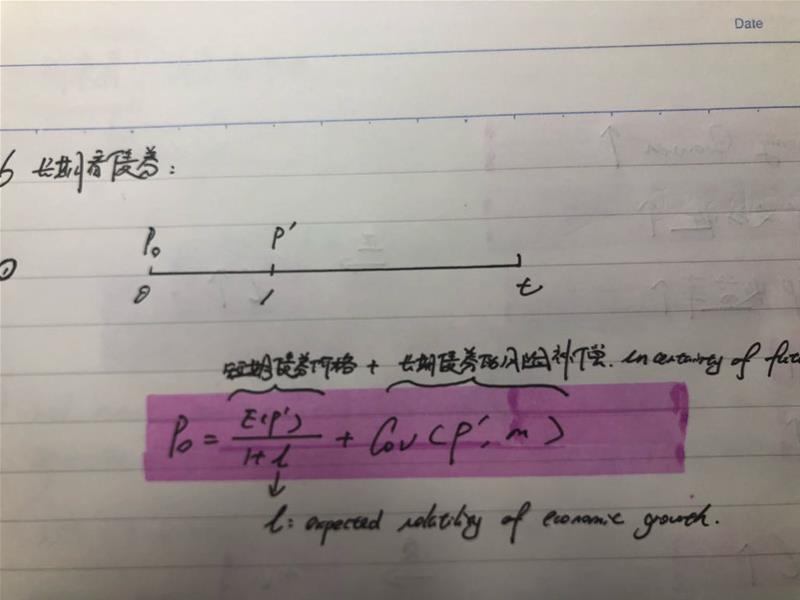 Date
b 长期有债券:
P₀ P'
①
0 1 t
短期债券价格 + 长期债券的风险补偿. uncertainty of futu
P₀ = E(P') / 1+l + Cov(P', m)
l: expected volatility of economic growth.